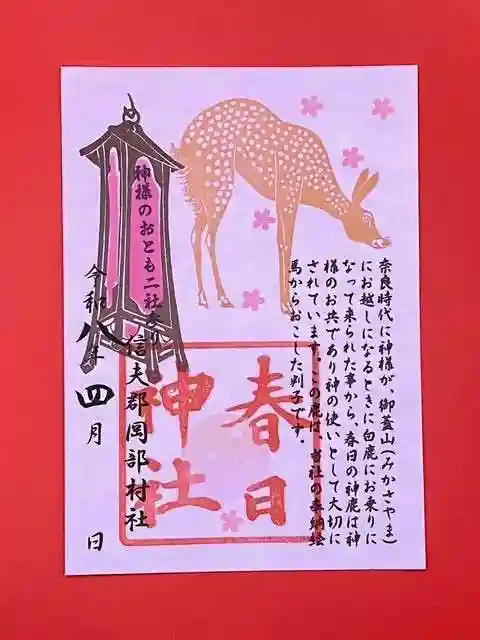 奈良時代に神様が、御蓋山(みかさやま)
にお越しになるときに白鹿にお乗りに
なって来られた事から、春日の神鹿は神
様のお共であり神の使いとして大切に
されています。この鹿は、当社の奉納絵
馬からおこした判子です。
春日
神社
神様のおとも二社参り
信夫郡岡部村社
令和八年
四月
日